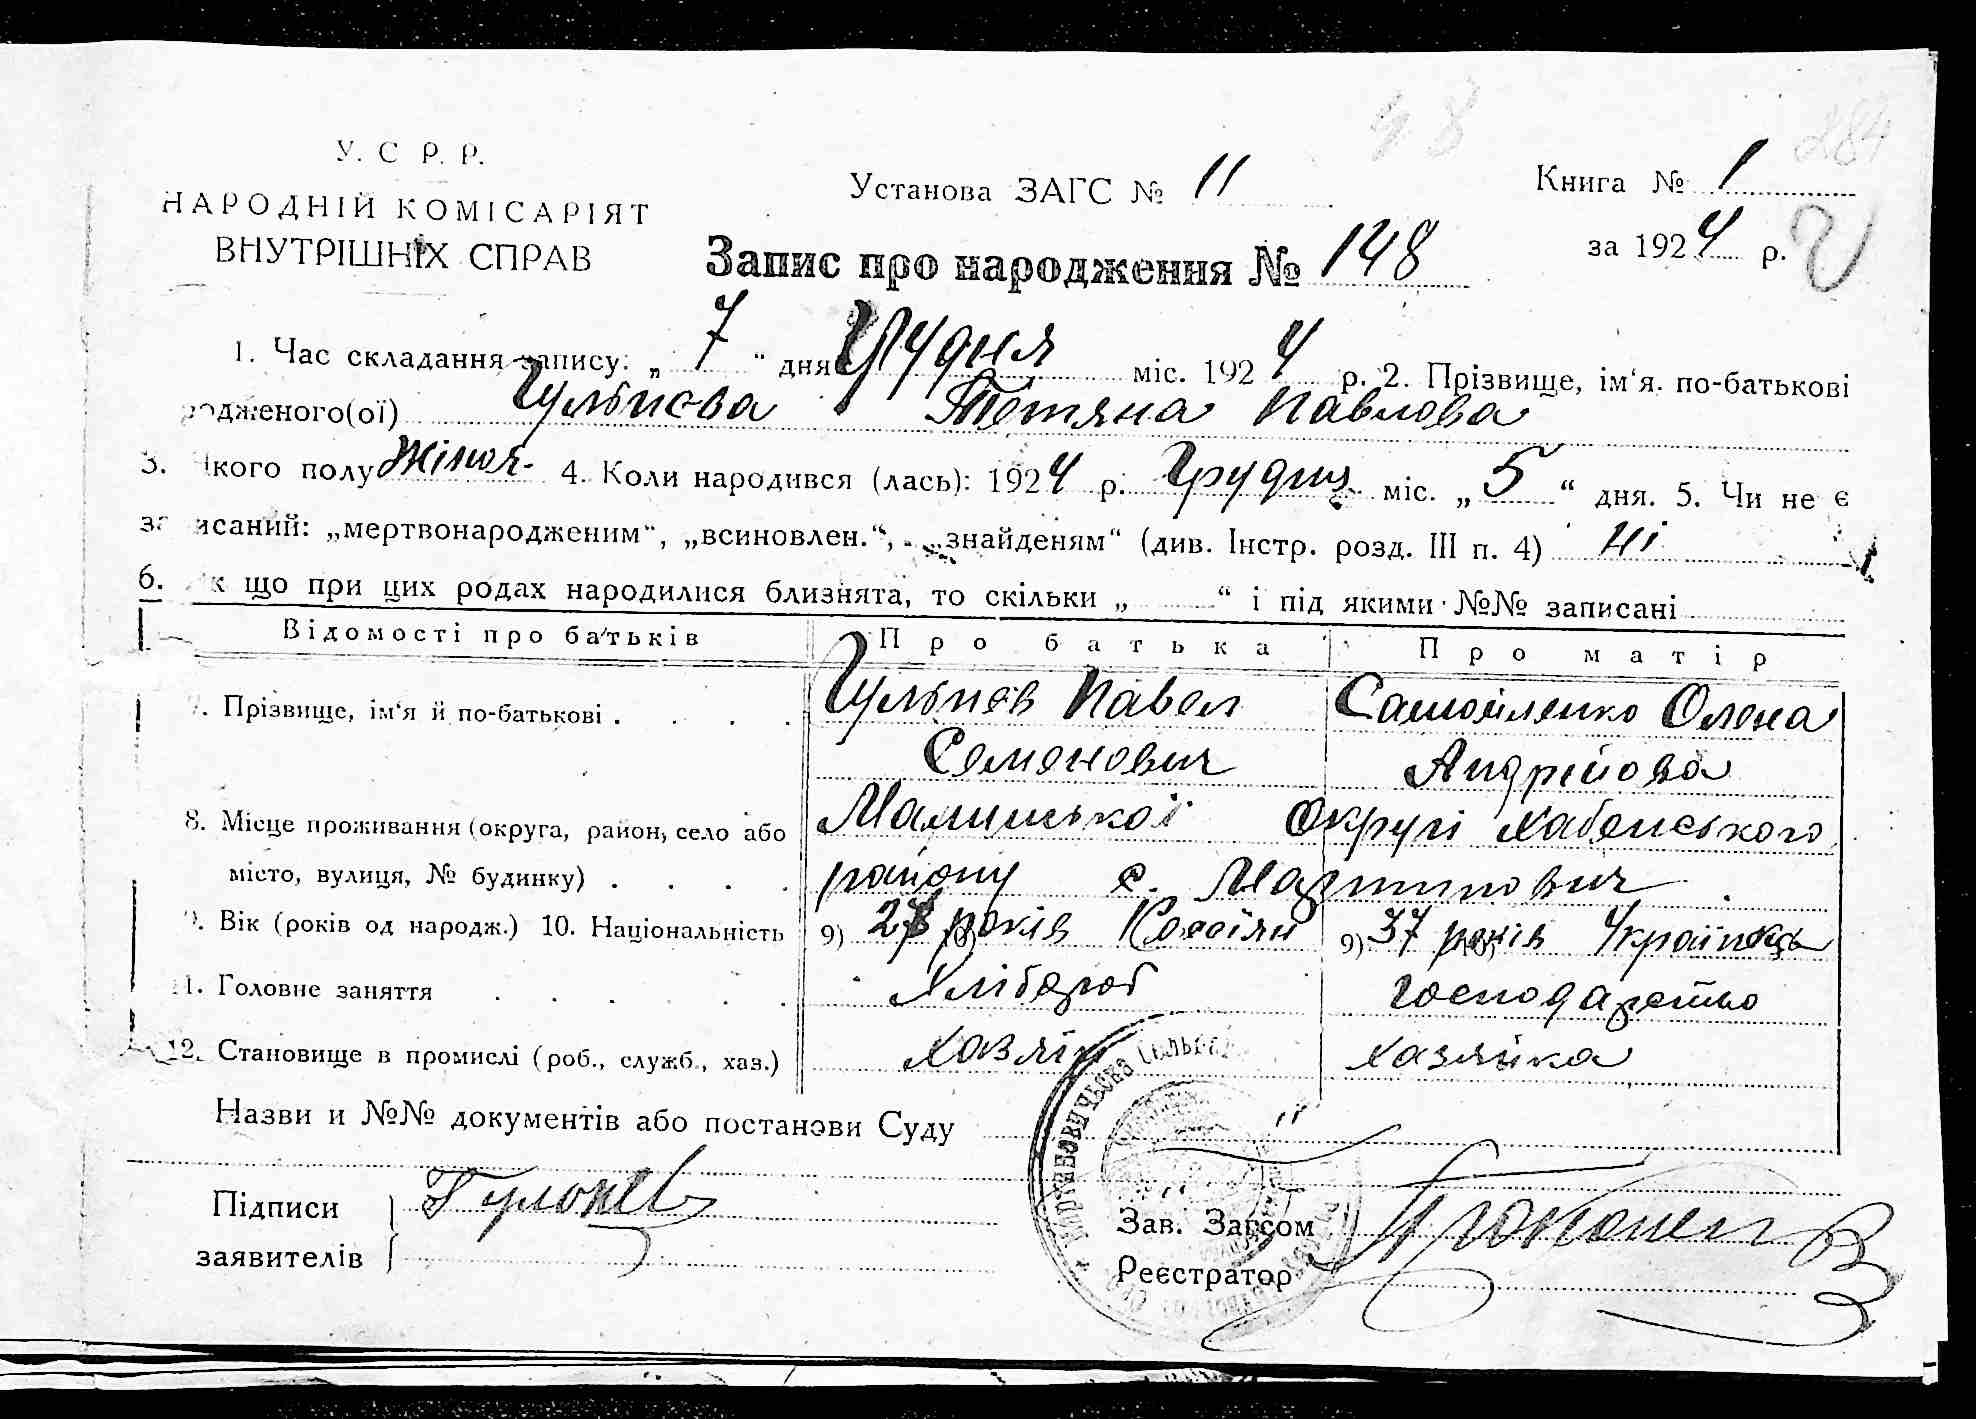 48
284
У. С Р. Р.
НАРОДНІЙ КОМІСАРІЯТ
ВНУТРІШНІХ СПРАВ
Установа ЗАГС № 11
Книга № 1
за 1924 р.
Запис про народження № 148
1. Час складання запису: „ 7 “ дня Грудня міс. 1924 р. 2. Прізвище, ім‘я. по-батькові
родженого(ої) Гульпєва Тетяна Павлова
3. Якого полу Жіноч. 4. Коли народився (лась): 1924 р. Грудня міс. „ 5 “ дня. 5. Чи не є
записаний: „мертвонародженим“, „всиновлен.“, „знайденям“ (див. Інстр. розд. III п. 4) Ні
6. Як що при цих родах народилися близнята, то скільки „ “ і під якими №№ записані
Відомості про батьків Про батька Про матір
7. Прізвище, ім‘я й по-батькові . . . . Гульпєв Павел Самойленко Олена
Семенович Андрійова
8. Місце проживання (округа, район, село або Малинської Округи Хабенського
місто, вулиця, № будинку) . . . . району с. Мартинович
9. Вік (років од народж.) 10. Національність 9) років 10) 9) 37 років 10) Українець
11. Головне заняття . . . . . . Хлібороб Господарство
12. Становище в промислі (роб., служб., хаз.) Хазяін Хазяйка
Назви и №№ документів або постанови Суду "
Підписи
заявителів
Зав. Загсом
Реєстратор